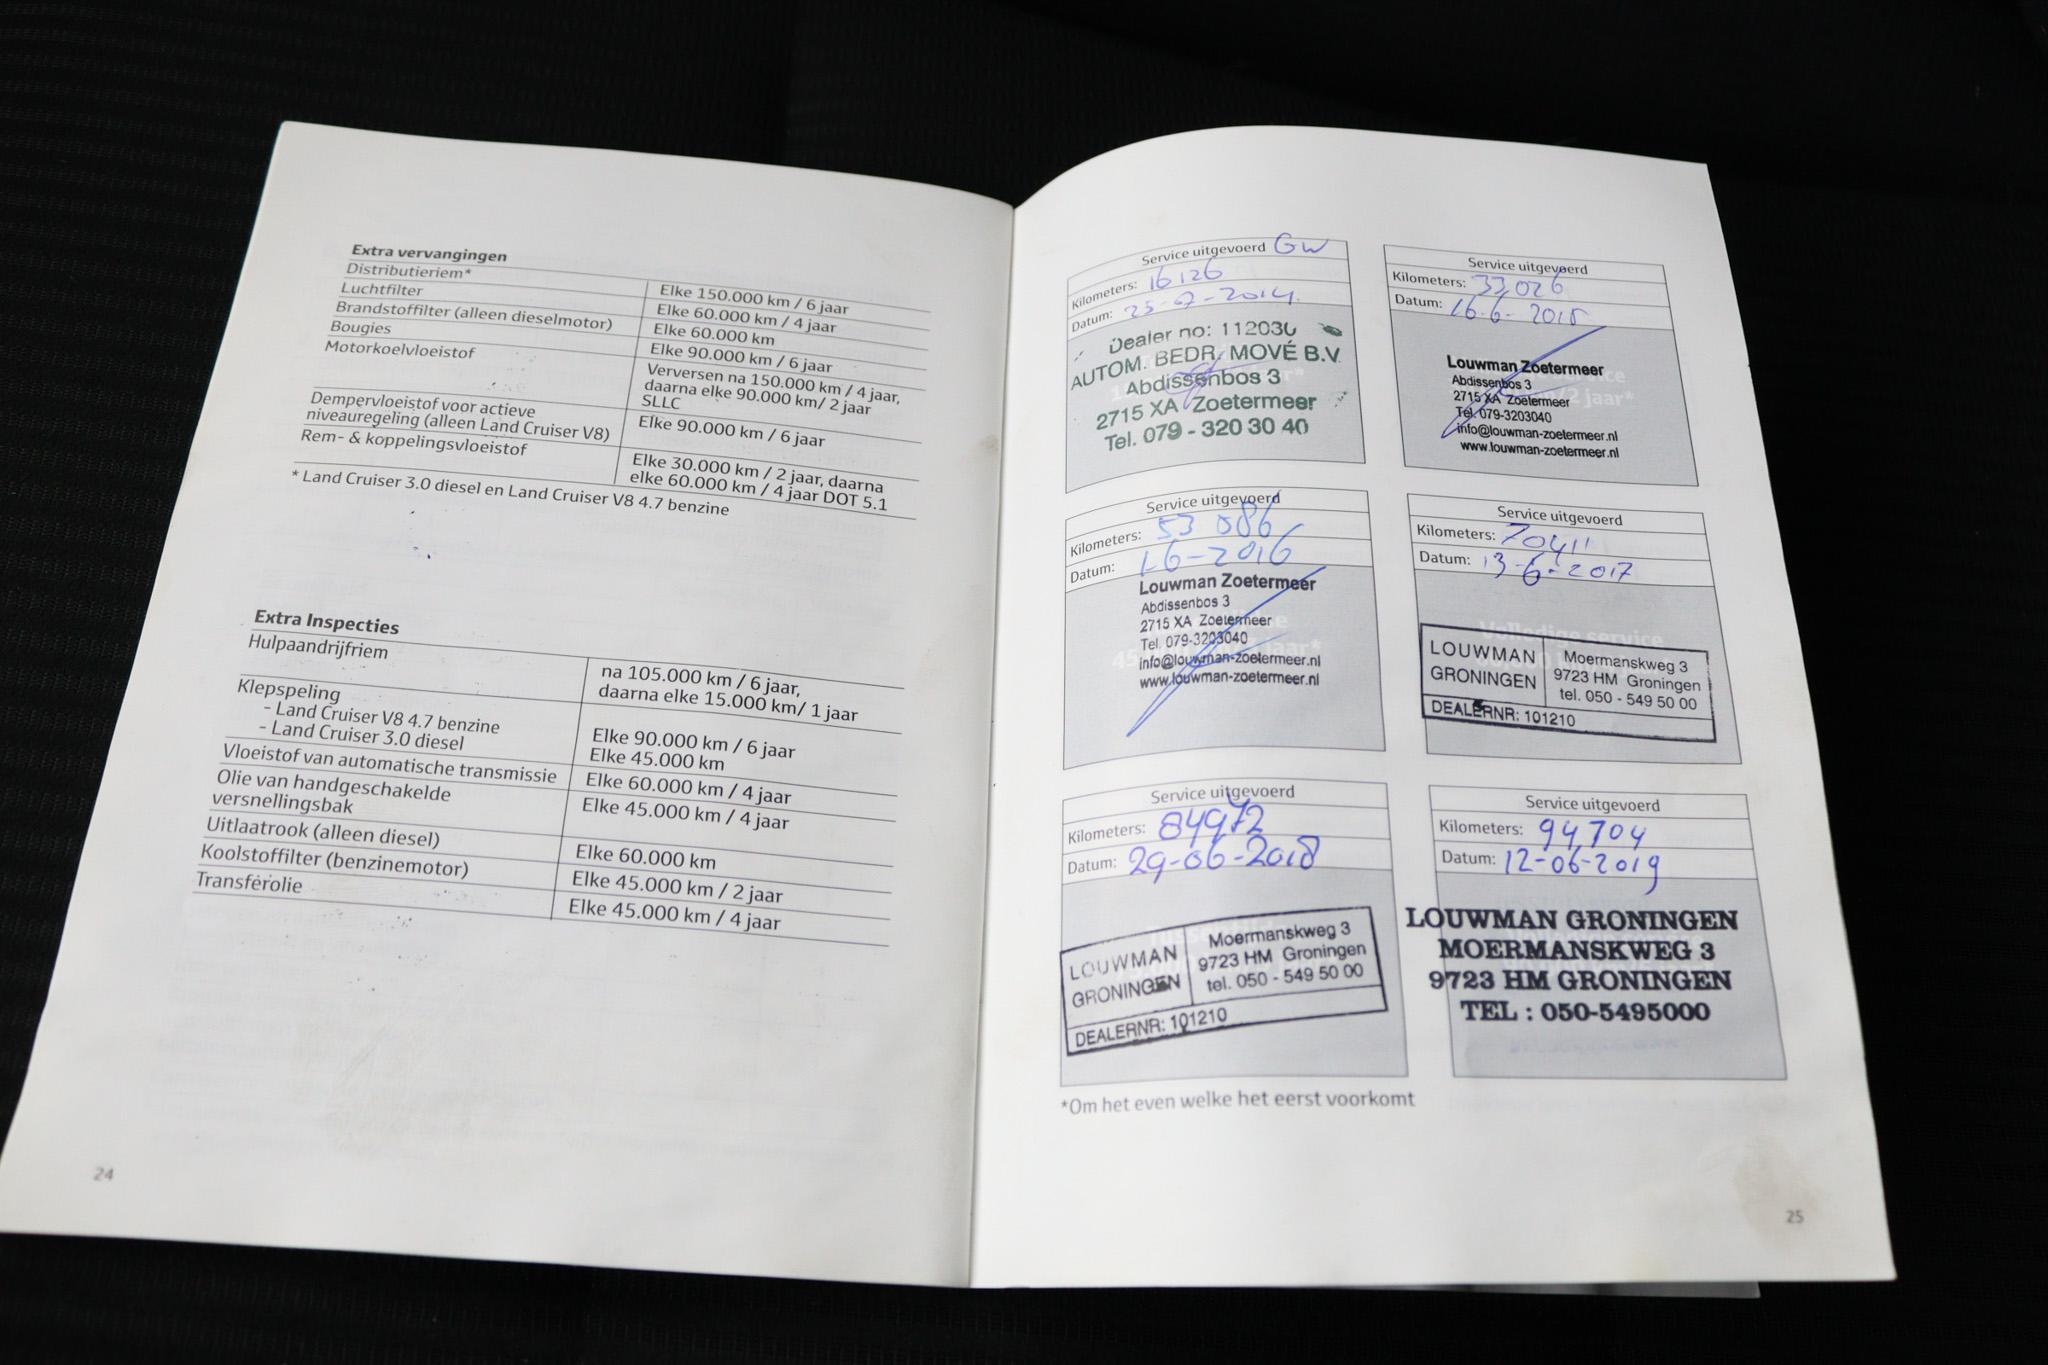 Extra vervangingen
Distributieriem*
Elke 150.000 km / 6 jaar
Luchtfilter
Elke 60.000 km / 4 jaar
Brandstoffilter (alleen dieselmotor)
Elke 60.000 km
Bougies
Elke 90.000 km / 6 jaar
Motorkoelvloeistof
Verversen na 150.000 km / 4 jaar,
daarna elke 90.000 km/ 2 jaar
SLLC
Dempervloeistof voor actieve
niveauregeling (alleen Land Cruiser V8)
Elke 90.000 km / 6 jaar
Rem- & koppelingsvloeistof
Elke 30.000 km / 2 jaar, daarna
elke 60.000 km / 4 jaar DOT 5.1
* Land Cruiser 3.0 diesel en Land Cruiser V8 4.7 benzine
Extra Inspecties
Hulpaandrijfriem
na 105.000 km / 6 jaar,
daarna elke 15.000 km/ 1 jaar
Klepspeling
- Land Cruiser V8 4.7 benzine
Elke 90.000 km / 6 jaar
- Land Cruiser 3.0 diesel
Elke 45.000 km
Vloeistof van automatische transmissie
Elke 60.000 km / 4 jaar
Olie van handgeschakelde
versnellingsbak
Elke 45.000 km / 4 jaar
Uitlaatrook (alleen diesel)
Elke 60.000 km
Koolstoffilter (benzinemotor)
Elke 45.000 km / 2 jaar
Transferolie
Elke 45.000 km / 4 jaar
24
Service uitgevoerd GW
Kilometers: 16126
Datum: 25-07-2014
Dealer no: 112030
AUTOM. BEDR. MOVÉ B.V.
Abdissenbos 3
2715 XA Zoetermeer
Tel. 079 - 320 30 40
Service uitgevoerd
Kilometers: 33026
Datum: 16-6-2015
Louwman Zoetermeer
Abdissenbos 3
2715 XA Zoetermeer
Tel. 079-3203040
info@louwman-zoetermeer.nl
www.louwman-zoetermeer.nl
Service uitgevoerd
Kilometers: 53086
Datum: 1-6-2016
Louwman Zoetermeer
Abdissenbos 3
2715 XA Zoetermeer
Tel. 079-3203040
info@louwman-zoetermeer.nl
www.louwman-zoetermeer.nl
Service uitgevoerd
Kilometers: 70411
Datum: 13-6-2017
Volledige service
LOUWMAN
GRONINGEN
Moermanskweg 3
9723 HM Groningen
tel. 050 - 549 50 00
DEALERNR: 101210
Service uitgevoerd
Kilometers: 84972
Datum: 29-06-2018
LOUWMAN
GRONINGEN
Moermanskweg 3
9723 HM Groningen
tel. 050 - 549 50 00
DEALERNR: 101210
Service uitgevoerd
Kilometers: 94704
Datum: 12-06-2019
LOUWMAN GRONINGEN
MOERMANSKWEG 3
9723 HM GRONINGEN
TEL : 050-5495000
*Om het even welke het eerst voorkomt
25